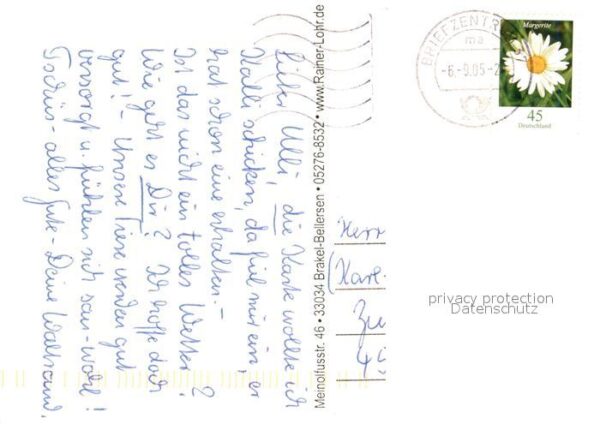 Lieber Ulli, die Karte wollte ich
Kalli schicken, da fiel mir ein, er
hat schon eine erhalten. –
Ist das nicht ein tolles Wetter?
Wie geht es Dir? Ich hoffe doch
gut! – Unsere Tiere werden gut
versorgt u. fühlen sich sau-wohl!
Tschüs – alles Gute – Deine Waltraud.
Meinolfusstr. 46 • 33034 Brakel-Bellersen • 05276-8532 • www.Rainer-Lohr.de
BRIEFZENTRUM
ma
-6.-9.05-2
Margerite
45
Deutschland
Herr
privacy protection
Datenschutz